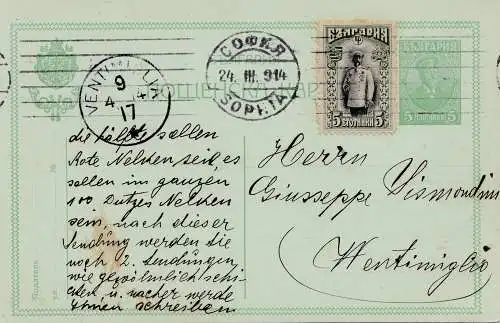 СОФИЯ
24. III. 914
SOPHIA
VENTIMIGLIA
9
4 4
17
БЪЛГАРИЯ
5 5
СТОТИНКИ
БЪЛГАРИЯ
5 5
СТОТИНКИ
ПОЩЕНСКА КАРТА
die hälfte sollen
Rote Nelken seid, es
sollen im ganzen
100 Dutzes Nelken
sein, nach dieser
Sendung werden Sie
noch 2. Sendungen
wie gewöhnlich schi-
cken, u. nacher werde
Ihnen schreiben
Herrn
Giuseppe Vismondini
Wentimiglio
Подател